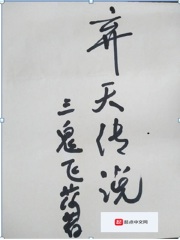 弃天传说
三鬼飞莎著
起点中文网